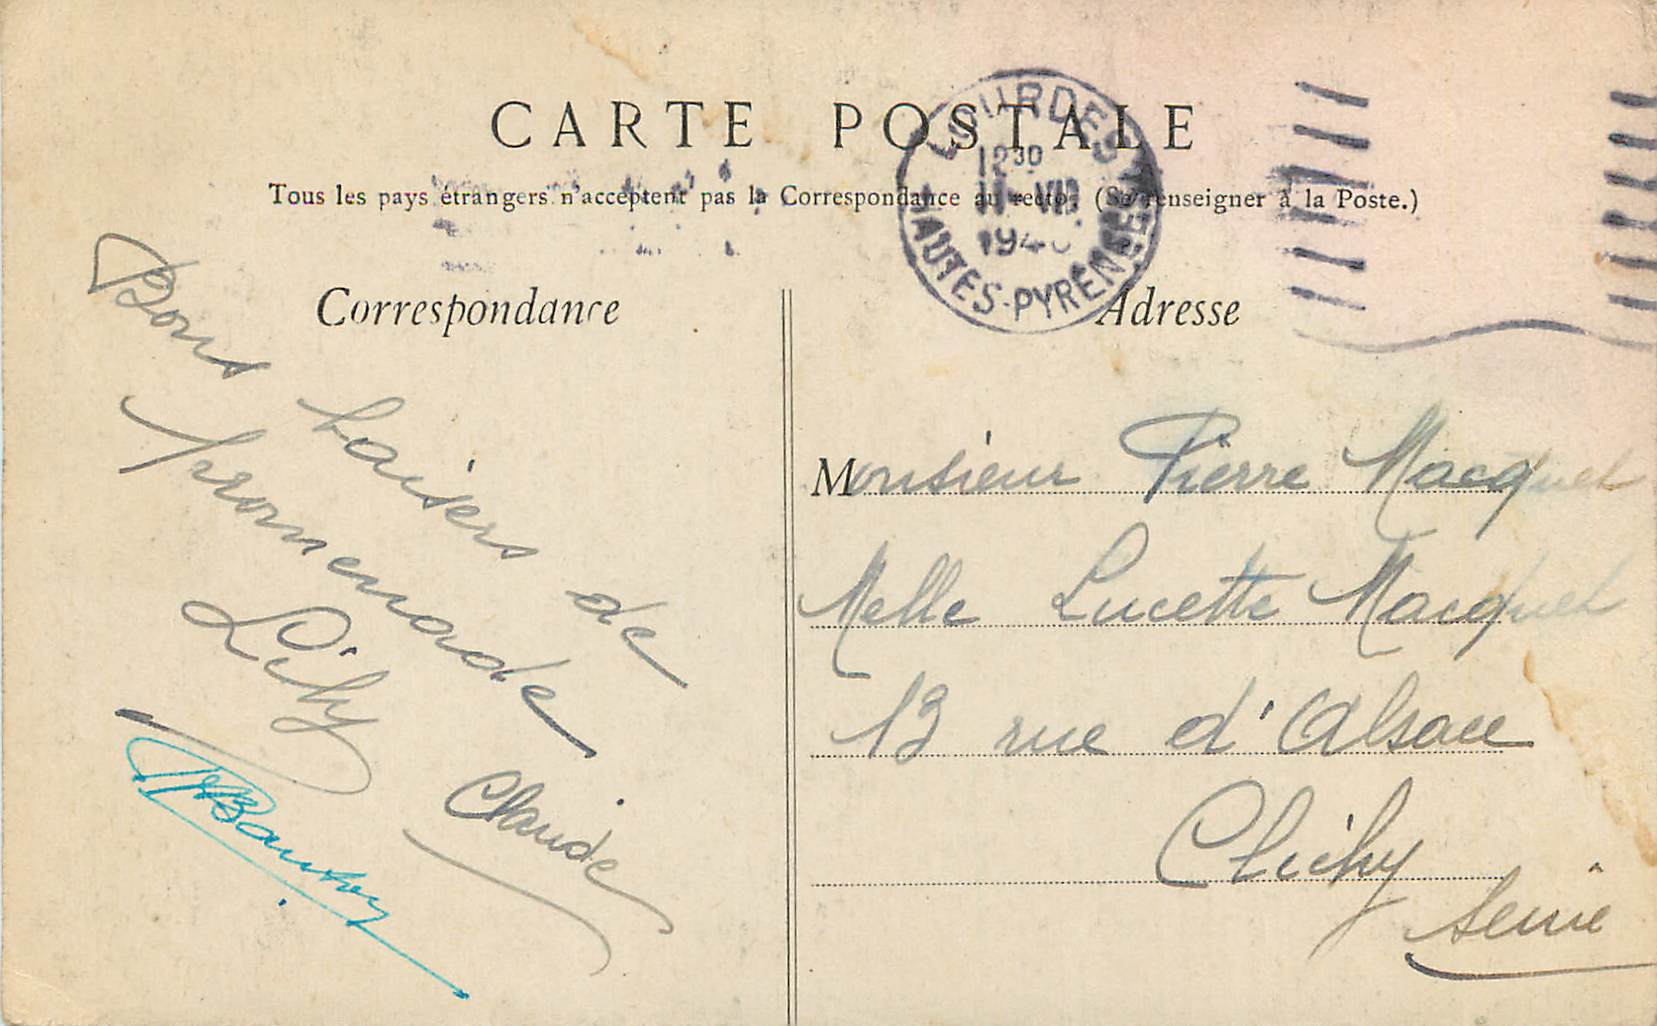 CARTE POSTALE
Tous les pays étrangers n'acceptent pas la Correspondance au recto, (Se renseigner à la Poste.)
LOURDES
12 30
HAUTES-PYRENEES
Correspondance
Bons baisers de
promenade
Lily
Claude
Adresse
Monsieur Pierre Macquet
Melle Lucette Macquet
13 rue d'Alsace
Clichy
Seine